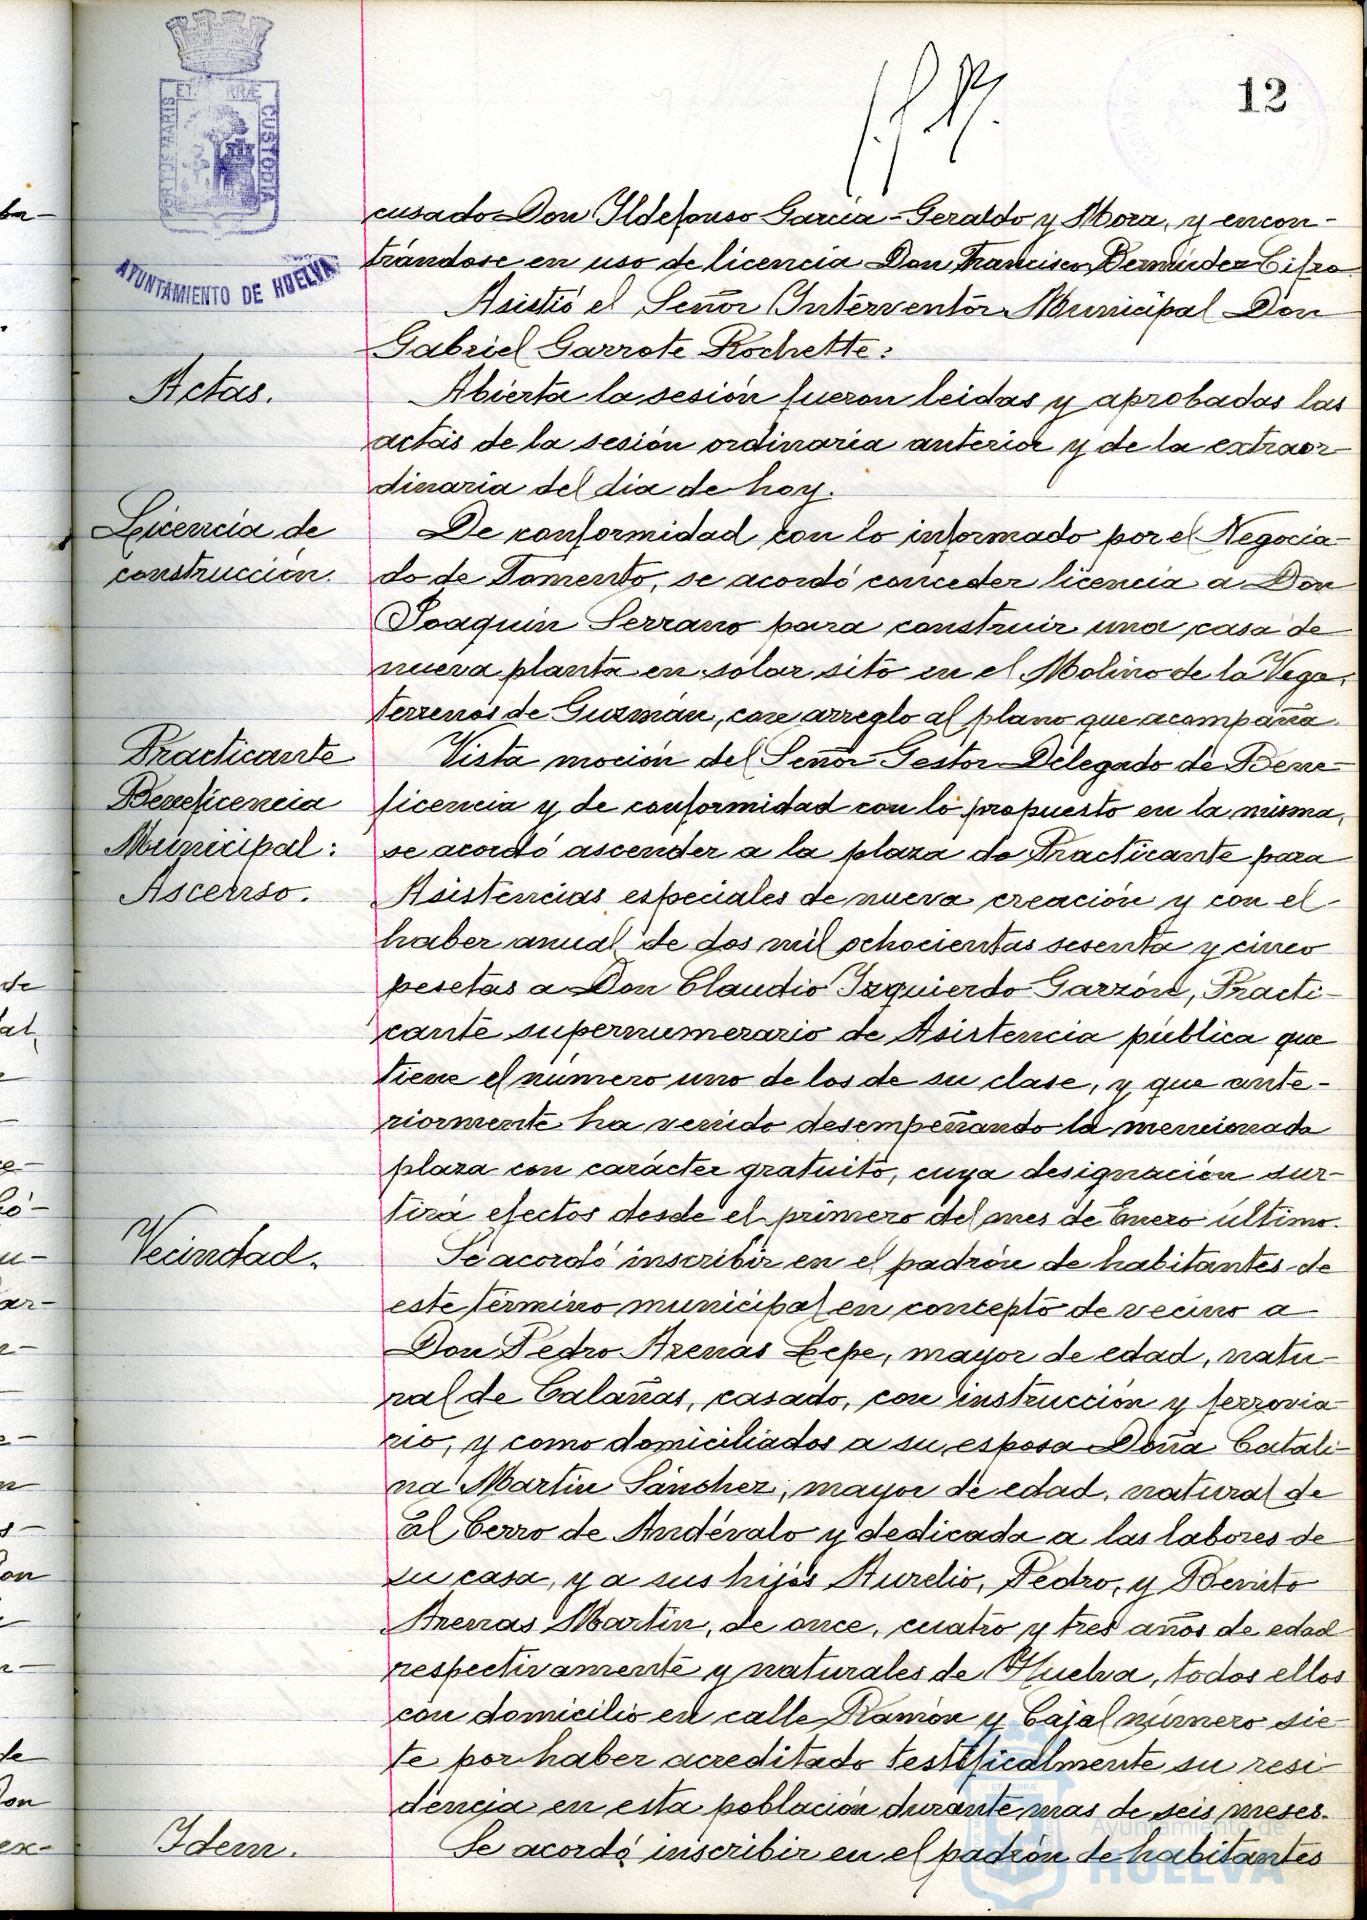 12
PORTUS MARIS ET TERRÆ CUSTODIA
AYUNTAMIENTO DE HUELVA
cusado Don Ildefonso García-Geraldo y Mora, y encon-
trándose en uso de licencia Don Francisco Bermúdez Cifra
Asistió el Señor Interventor Municipal Don
Gabriel Garrote Rochette:
Actas.
Abierta la sesión fueron leidas y aprobadas las
actas de la sesión ordinaria anterior y de la extraor-
dinaria del día de hoy.
Licencia de
construcción.
De conformidad con lo informado por el Negocia-
do de Fomento, se acordó conceder licencia a Don
Joaquín Serrano para construir una casa de
nueva planta en solar sito en el Molino de la Vega,
terrenos de Guzmán, con arreglo al plano que acompaña.
Practicante
Beneficencia
Municipal:
Ascenso.
Vista moción del Señor Gestor Delegado de Bene-
ficencia y de conformidad con lo propuesto en la misma,
se acordó ascender a la plaza de Practicante para
Asistencias especiales de nueva creación y con el
haber anual de dos mil ochocientas sesenta y cinco
pesetas a Don Claudio Izquierdo Garzón, Practi-
cante supernumerario de Asistencia pública que
tiene el número uno de los de su clase, y que ante-
riormente ha venido desempeñando la mencionada
plaza con carácter gratuito, cuya designación sur-
tirá efectos desde el primero del mes de Enero último.
Vecindad.
Se acordó inscribir en el padrón de habitantes de
este término municipal en concepto de vecino a
Don Pedro Arenas Lepe, mayor de edad, natu-
ral de Calañas, casado, con instrucción y ferrovia-
rio, y como domiciliados a su esposa Doña Catali-
na Martin Sánchez, mayor de edad, natural de
El Cerro de Andévalo y dedicada a las labores de
su casa, y a sus hijos Aurelio, Pedro, y Benito
Arenas Martín, de once, cuatro y tres años de edad
respectivamente y naturales de Huelva, todos ellos
con domicilio en calle Ramón y Cajal número sie-
te por haber acreditado testificalmente su resi-
dencia en esta población durante mas de seis meses.
Idem.
Se acordó inscribir en el padrón de habitantes
Ayuntamiento de
HUELVA